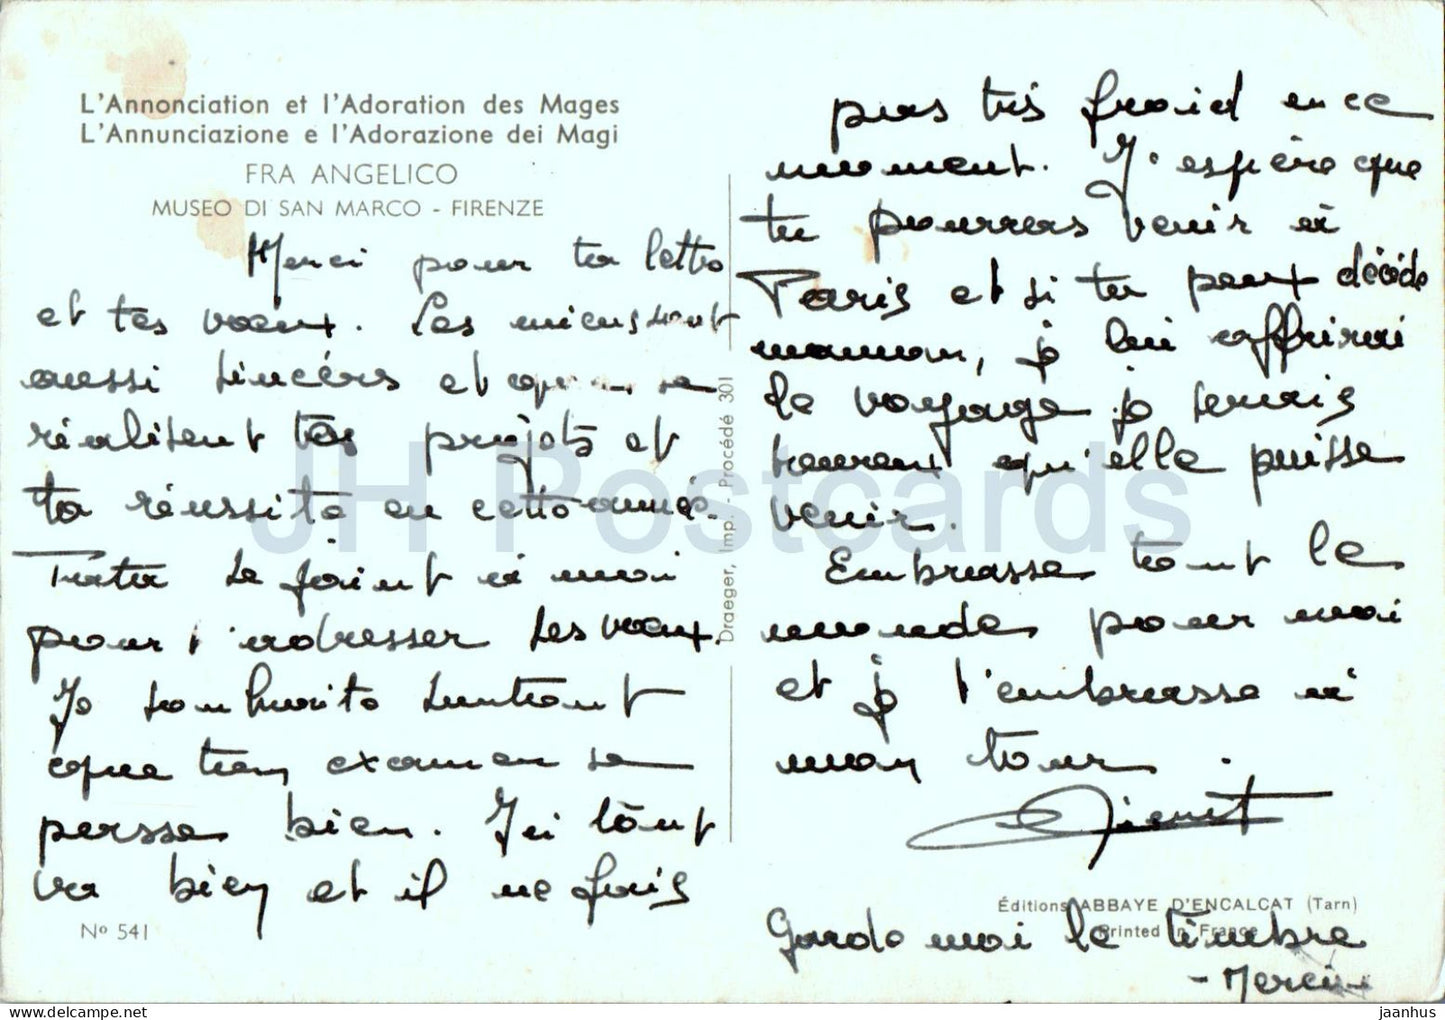 L'Annonciation et l'Adoration des Mages
L'Annunciazione e l'Adorazione dei Magi
FRA ANGELICO
MUSEO DI SAN MARCO - FIRENZE
Merci pour ta lettre
et tes vœux. Les miens sont
aussi sincères et que se
réalisent tes projets et
ta réussite en cette année.
Tata se joint à moi
pour t'adresser ses vœux.
Je souhaite surtout
que ton examen se
passe bien. Ici tout
va bien et il ne fais
Nº 541
Draeger, Imp. - Procédé 301
pas très froid en ce
moment. J'espère que
tu pourras venir à
Paris et si tu peux décide
maman, je lui offrirai
le voyage je serais
heureux qu'elle puisse
venir.
Embrasse tout le
monde pour moi
et je t'embrasse à
mon tour.
Éditions ABBAYE D'ENCALCAT (Tarn)
Printed in France
Garde moi le timbre
- Merci -
JH Postcards
jaanhus